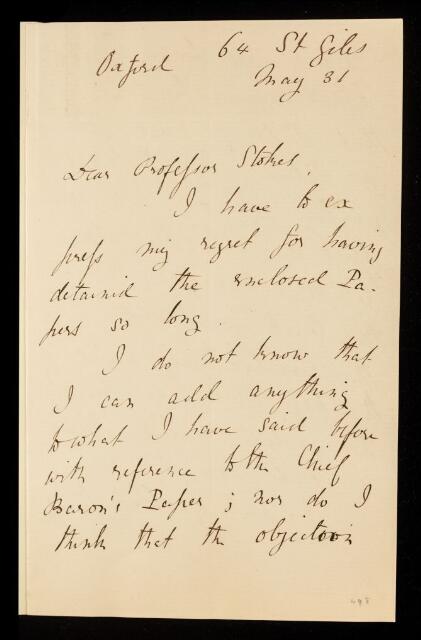 64 St Giles
Oxford
May 31
Dear Professor Stokes,
I have to ex
press my regret for having
detained the enclosed Pa-
pers so long.
I do not know that
I can add anything
to what I have said before
with reference to the Chief
Baron's Paper; nor do I
think that the objection
498